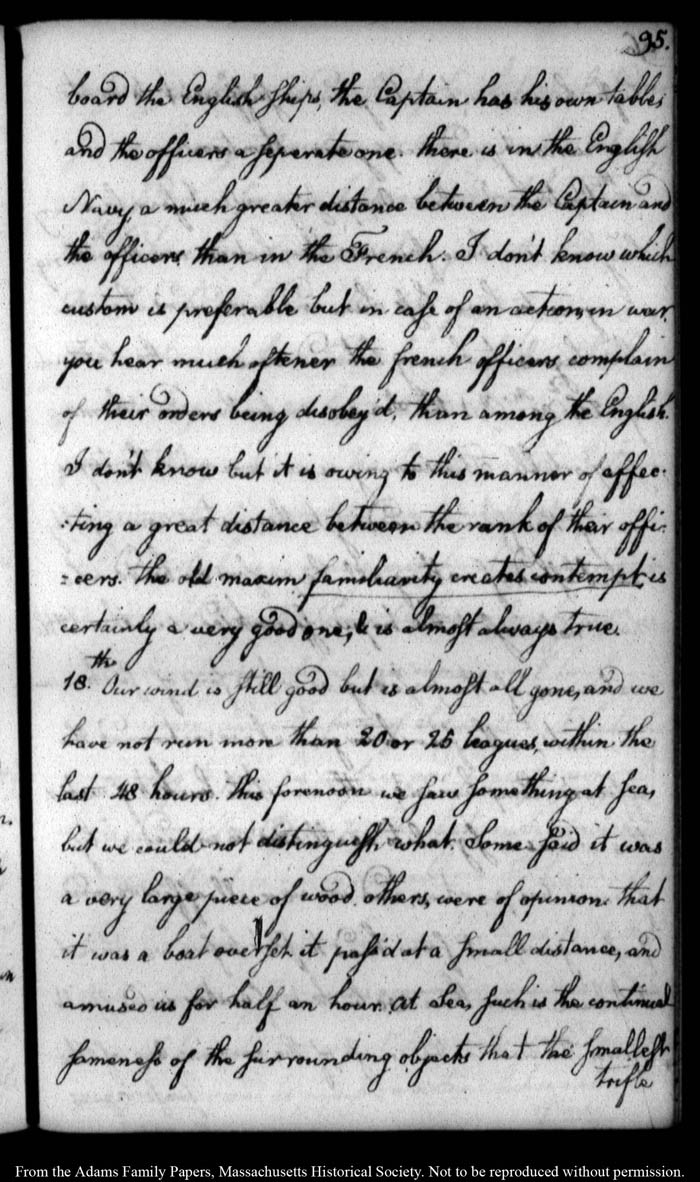 95.
board the English ships, the Captain has his own table,
and the officers a seperate one. there is in the English
Navy a much greater distance between the Captain and
the officers, than in the French. I don't know which
custom is preferable but in case of an action, in war,
you hear much oftener the french officers complain
of their orders being disobey'd, than among the English.
I don't know but it is owing to this manner of affec-
-ting a great distance between the rank of their offi-
-cers. the old maxim familiarity creates contempt, is
certainly a very good one, & is almost always true.
18.th Our wind is still good but is almost all gone, and we
have not run more than 20 or 25 leagues, within the
last 48 hours. this forenoon we saw something at sea,
but we could not distinguish what. Some said it was
a very large piece of wood, others, were of opinion that
it was a boat overset, it pass'd at a small distance, and
amused us for half an hour. At Sea, such is the continual
sameness of the surrounding objects that the smallest
trifle
From the Adams Family Papers, Massachusetts Historical Society. Not to be reproduced without permission.